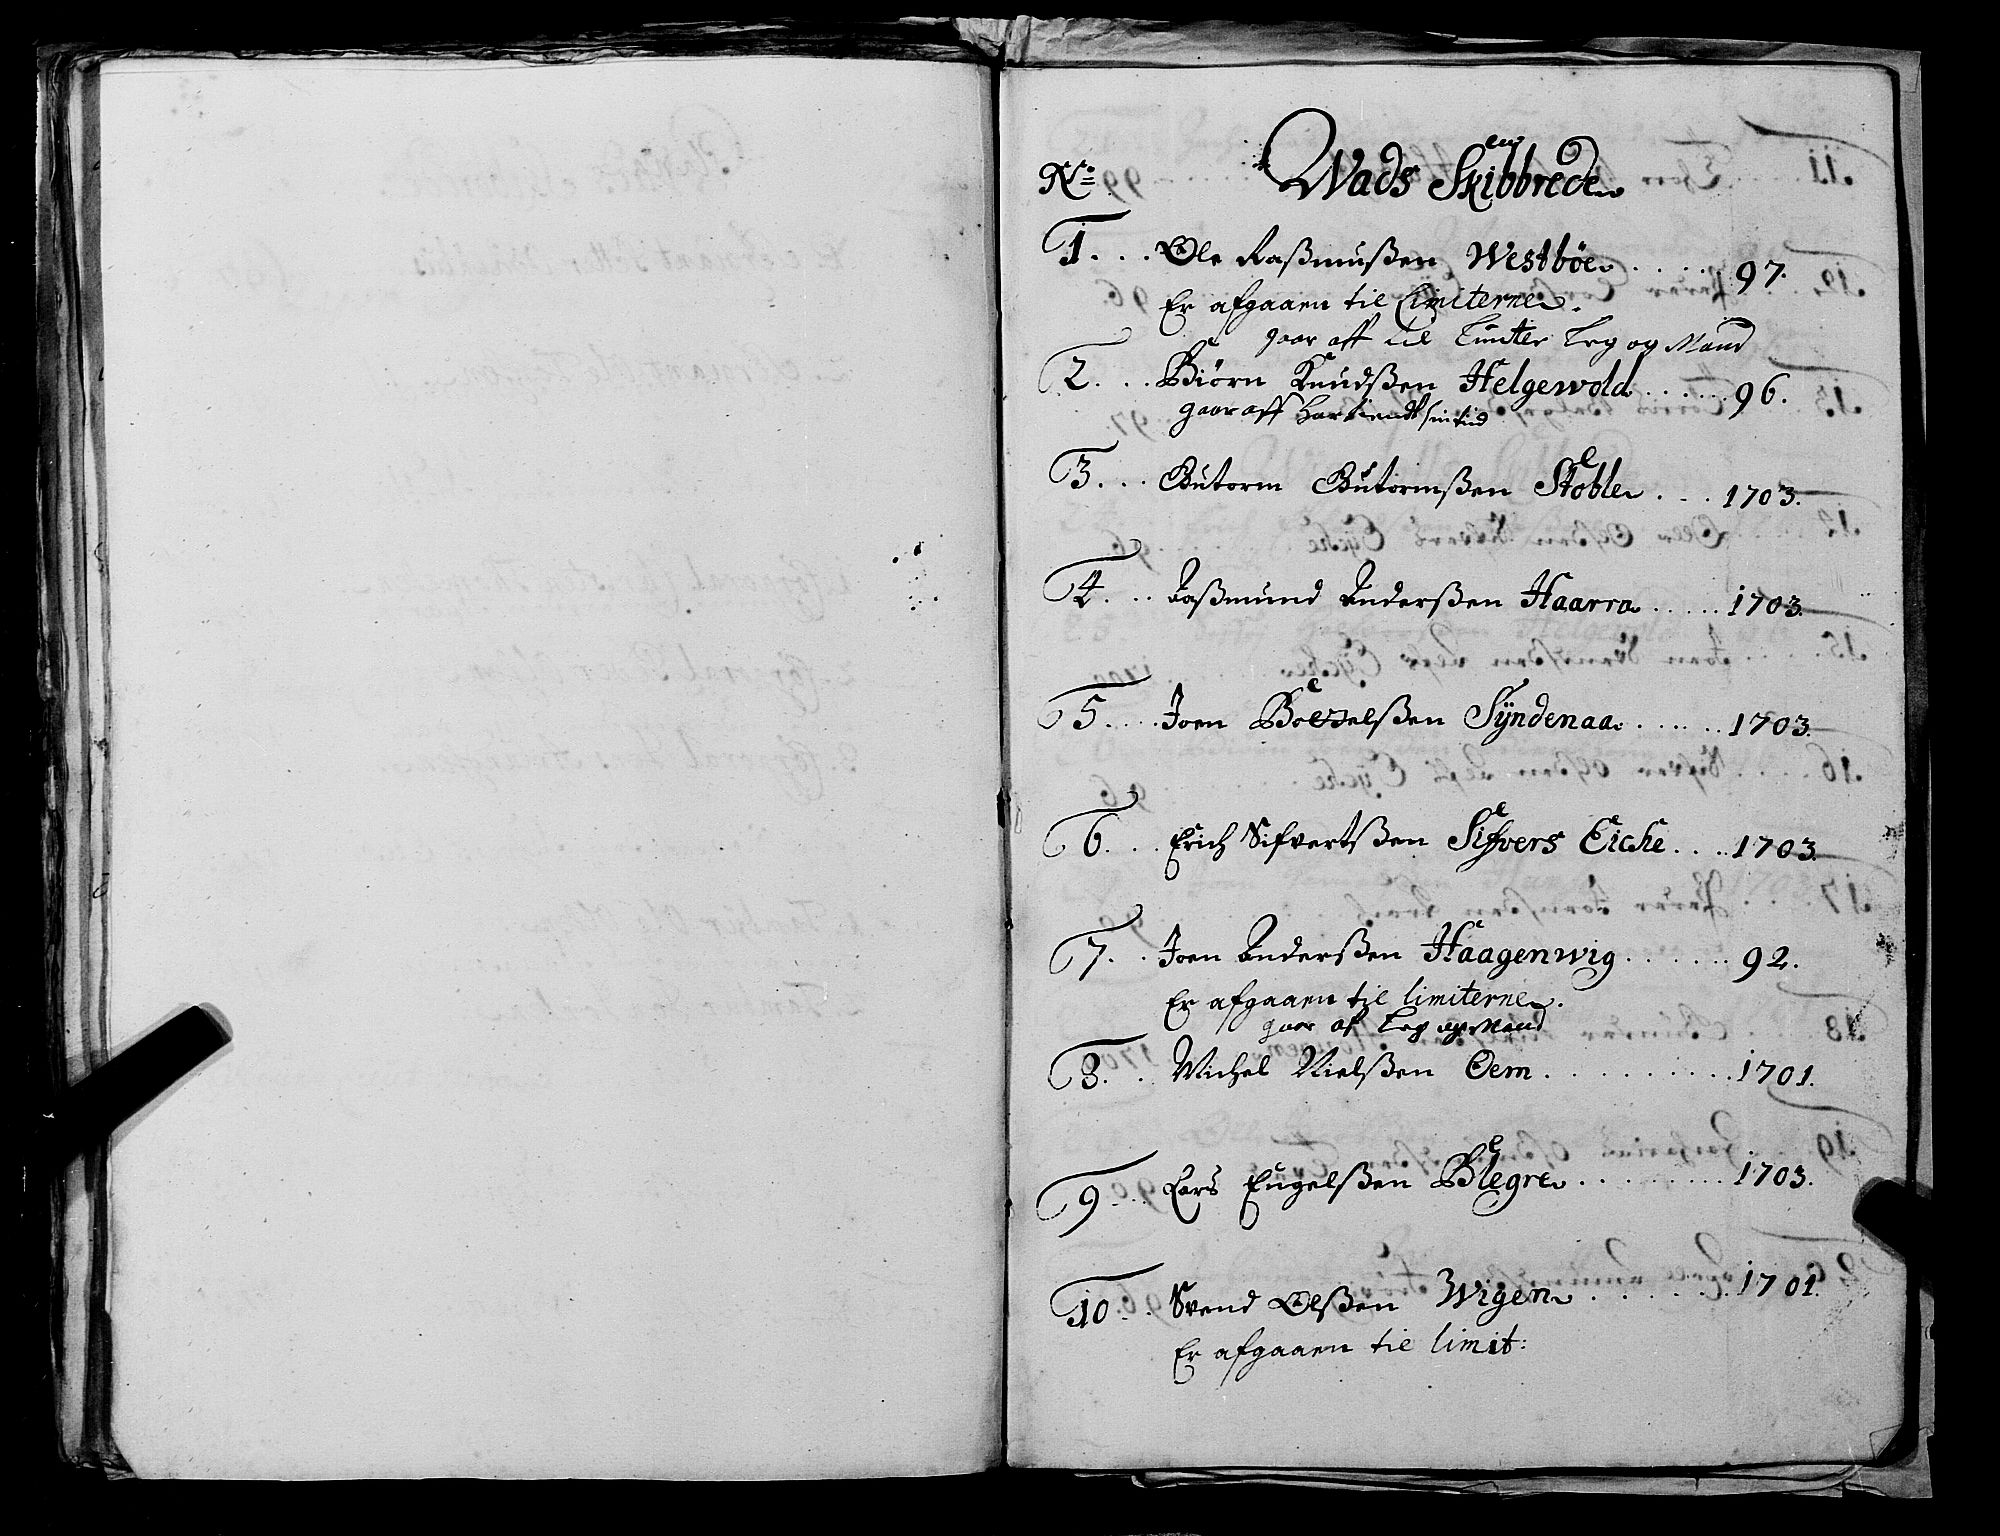 No: Wads Skibbrede
1. Ole Raßmußen Westböe 97.
Er afgaaen til Limiterne.
gaar aff til Limiter Leg og Mand
2. Biörn Knudßen Helgewold 96.
gaar aff har tiendt sin tiid
3. Gutorm Gutormßen Stoble 1703.
4. Raßmund Anderßen Haarra 1703.
5. Joen Botzelßen Sÿndenaa 1703.
6. Erich Sifvertßen Sifvers Eiche 1703.
7. Joen Anderßen Haagenwig 92.
Er afgaaen til limiterne.
gaar af Leg og Mand
8. Michel Nielßen Oem 1701.
9. Lars Engelßen Blegre 1703.
10. Svend Olßen Wigen 1701.
Er afgaaen til limit: